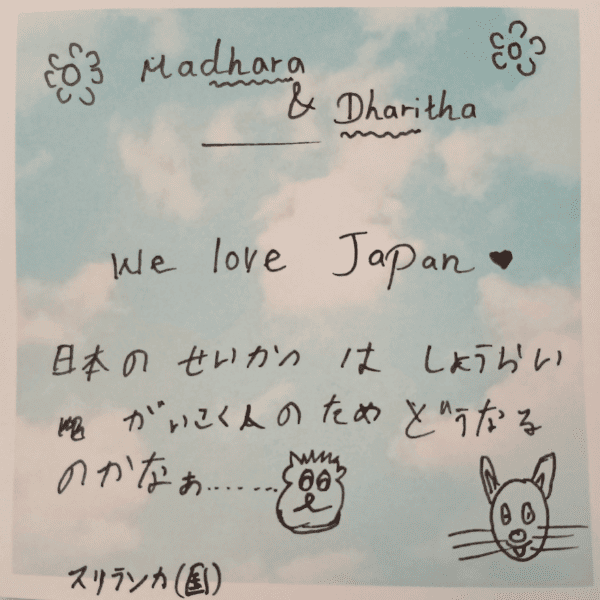 Madhara
& Dharitha
We love Japan ♥
日本の せいかつ は しょうらい
がいこく人のため どうなる
のかなぁ......
スリランカ(国)